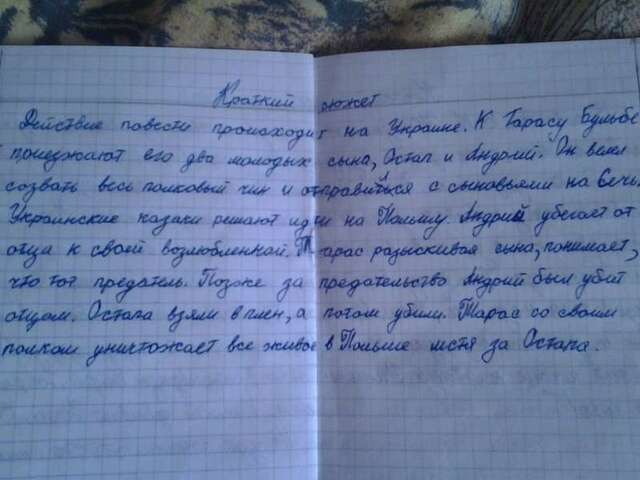 Краткий сюжет
Действие повести происходит на Украине. К Тарасу Бульбе
приезжают его два молодых сына, Остап и Андрий. Он велел
созвать весь полковый чин и отправиться с сыновьями на Сечь.
Украинские казаки решают идти на Польшу. Андрий убегает от
отца к своей возлюбленной. Тарас разыскивая сына, понимает,
что тот предатель. Позже за предательство Андрий был убит
отцом. Остапа взяли в плен, а потом убили. Тарас со своим
полком уничтожает все живое в Польше мстя за Остапа.